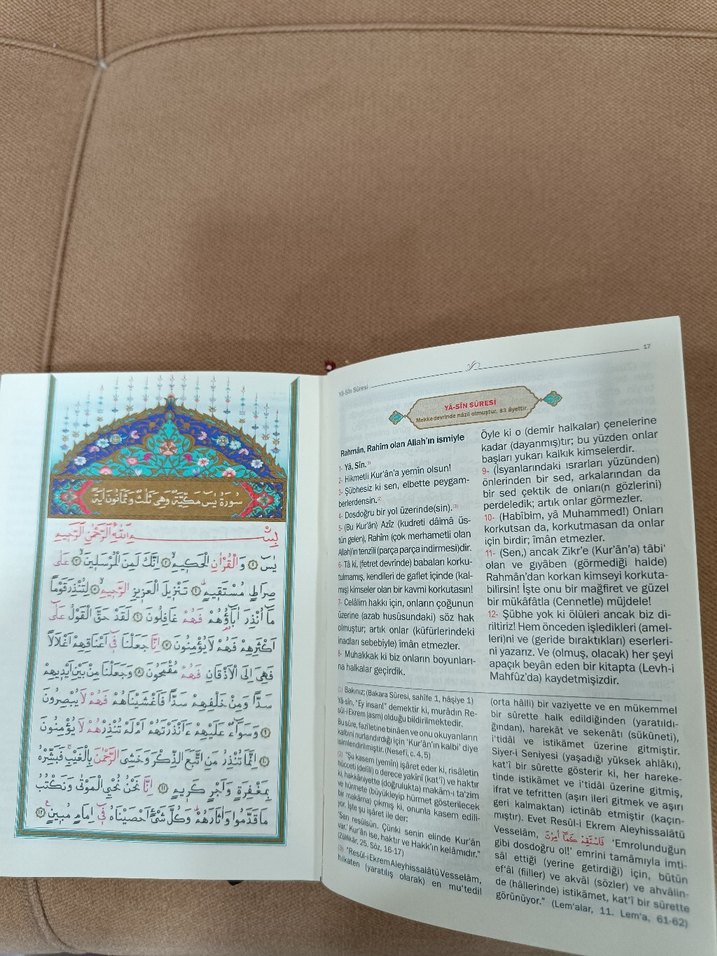 سُورَةُ يٰسٓ مَكِّيَّةٌ وَهِيَ ثَلٰثٌ وَثَمَانُونَ اٰيَةً
بِسْمِ اللّٰهِ الرَّحْمٰنِ الرَّحِيمِ
يٰسٓ ﴿١﴾ وَالْقُرْاٰنِ الْحَكِيمِ ﴿٢﴾ اِنَّكَ لَمِنَ الْمُرْسَلِينَ ﴿٣﴾ عَلٰى
صِرَاطٍ مُسْتَقِيمٍ ﴿٤﴾ تَنْزِيلَ الْعَزِيزِ الرَّحِيمِ ﴿٥﴾ لِتُنْذِرَ قَوْمًا
مَا اُنْذِرَ اٰبَاؤُهُمْ فَهُمْ غَافِلُونَ ﴿٦﴾ لَقَدْ حَقَّ الْقَوْلُ عَلٰى
اَكْثَرِهِمْ فَهُمْ لَا يُؤْمِنُونَ ﴿٧﴾ اِنَّا جَعَلْنَا فِى اَعْنَاقِهِمْ اَغْلَالًا
فَهِىَ اِلَى الْاَذْقَانِ فَهُمْ مُقْمَحُونَ ﴿٨﴾ وَجَعَلْنَا مِنْ بَيْنِ اَيْدِيهِمْ
سَدًّا وَمِنْ خَلْفِهِمْ سَدًّا فَاَغْشَيْنَاهُمْ فَهُمْ لَا يُبْصِرُونَ ﴿٩﴾
وَسَوَاءٌ عَلَيْهِمْ ءَاَنْذَرْتَهُمْ اَمْ لَمْ تُنْذِرْهُمْ لَا يُؤْمِنُونَ ﴿١٠﴾
اِنَّمَا تُنْذِرُ مَنِ اتَّبَعَ الذِّكْرَ وَخَشِىَ الرَّحْمٰنَ بِالْغَيْبِ فَبَشِّرْهُ
بِمَغْفِرَةٍ وَاَجْرٍ كَرِيمٍ ﴿١١﴾ اِنَّا نَحْنُ نُحْىِ الْمَوْتٰى وَنَكْتُبُ
مَا قَدَّمُوا وَاٰثَارَهُمْ وَكُلَّ شَىْءٍ اَحْصَيْنَاهُ فِى اِمَامٍ مُبِينٍ ﴿١٢﴾
Yâ-Sîn Sûresi
17
YÂ-SÎN SÛRESİ
Mekke devrinde nâzil olmuştur, 83 âyettir.
Rahmân, Rahîm olan Allah'ın ismiyle
1- Yâ, Sîn.(1)
2- Hikmetli Kur'ân'a yemin olsun!
3- Şübhesiz ki sen, elbette peygam-
berlerdensin.(2)
4- Dosdoğru bir yol üzerinde(sin).(3)
5- (Bu Kur'ân) Azîz (kudreti dâimâ üs-
tün gelen), Rahîm (çok merhametli olan
Allah)'ın tenzîl (parça parça indirmesi)dir.
6- Tâ ki, (fetret devrinde) babaları korku-
tulmamış, kendileri de gaflet içinde (kal-
mış) kimseler olan bir kavmi korkutasın!
7- Celâlim hakkı için, onların çoğunun
üzerine (azab husûsundaki) söz hak
olmuştur; artık onlar (küfürlerindeki
inadları sebebiyle) îmân etmezler.
8- Muhakkak ki biz onların boyunları-
na halkalar geçirdik.
Öyle ki o (demir halkalar) çenelerine
kadar (dayanmış)tır; bu yüzden onlar
başları yukarı kalkık kimselerdir.
9- (İsyanlarındaki ısrarları yüzünden)
önlerinden bir sed, arkalarından da
bir sed çektik de onları(n gözlerini)
perdeledik; artık onlar görmezler.
10- (Habîbim, yâ Muhammed!) Onları
korkutsan da, korkutmasan da onlar
için birdir; îmân etmezler.
11- (Sen,) ancak Zikr'e (Kur'ân'a) tâbi'
olan ve gıyâben (görmediği halde)
Rahmân'dan korkan kimseyi korkuta-
bilirsin! İşte onu bir mağfiret ve güzel
bir mükâfâtla (Cennetle) müjdele!
12- Şübhe yok ki ölüleri ancak biz di-
riltiriz! Hem önceden işledikleri (amel-
leri)ni ve (geride bıraktıkları) eserleri-
ni yazarız. Ve (olmuş, olacak) her şeyi
apaçık beyân eden bir kitapta (Levh-i
Mahfûz'da) kaydetmişizdir.
(1) Bakınız; (Bakara Sûresi, sahîfe 1, hâşiye 1)
Yâ-sîn, "Ey insan!" demektir ki, murâdın Re-
sûl-i Ekrem (asm) olduğu bildirilmektedir.
Bu sûre, fazîletine binâen ve onu okuyanların
kalbini nurlandırdığı için 'Kur'ân'ın kalbi' diye
isimlendirilmiştir. (Nesefî, c. 4, 5)
(2) "Şu kasem (yemin) işâret eder ki, risâletin
hücceti (delîli) o derece yakînî (kat'î) ve haktır
ki, hakkāniyette (doğrulukta) makām-ı ta'zîm
ve hürmete (büyükleyip hürmet gösterilecek
bir makāma) çıkmış ki, onunla kasem edili-
yor. İşte şu işâret ile der:
'Sen resûlsün. Çünki senin elinde Kur'ân
var. Kur'ân ise, haktır ve Hakk'ın kelâmıdır.'"
(Zülfikār, 25. Söz, 16-17)
(3) "Resûl-i Ekrem Aleyhissalâtü Vesselâm,
hilkaten (yaratılış olarak) en mu'tedil
(orta hâlli) bir vaziyette ve en mükemmel
bir sûrette halk edildiğinden (yaratıldı-
ğından), harekât ve sekenâtı (sükûneti),
i'tidâl ve istikāmet üzerine gitmiştir.
Siyer-i Seniyesi (yaşadığı yüksek ahlâkı),
kat'î bir sûrette gösterir ki, her hareke-
tinde istikāmet ve i'tidâl üzerine gitmiş,
ifrat ve tefritten (aşırı ileri gitmek ve aşırı
geri kalmaktan) ictinâb etmiştir (kaçın-
mıştır). Evet Resûl-i Ekrem Aleyhissalâtü
Vesselâm, فَاسْتَقِمْ كَمَٓا اُمِرْتَ 'Emrolunduğun
gibi dosdoğru ol!' emrini tamâmıyla imti-
sâl ettiği (yerine getirdiği) için, bütün
ef'âli (fiilleri) ve akvâl (sözler) ve ahvâlin-
de (hâllerinde) istikāmet, kat'î bir sûrette
görünüyor." (Lem'alar, 11. Lem'a, 61-62)